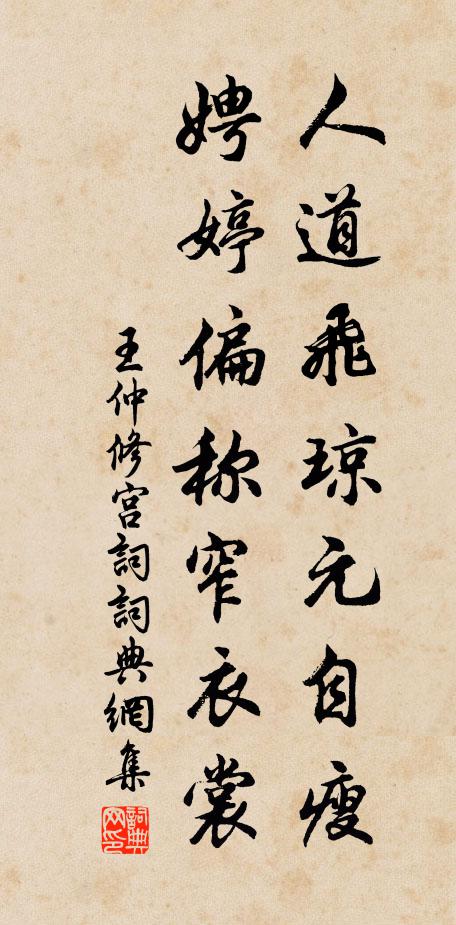 人道飛琼元自瘦
娉婷偏称窄衣裳
王仲修宫詞詞典網集
詞典網印